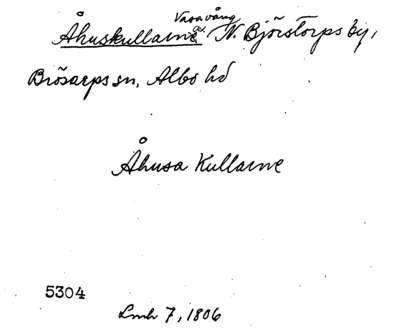 Vasavång
Åhuskullarne av N. Björstorps by,
Brösarps sn, Albo hd
Åhusa Kullarne
5304
Lmh 7, 1806